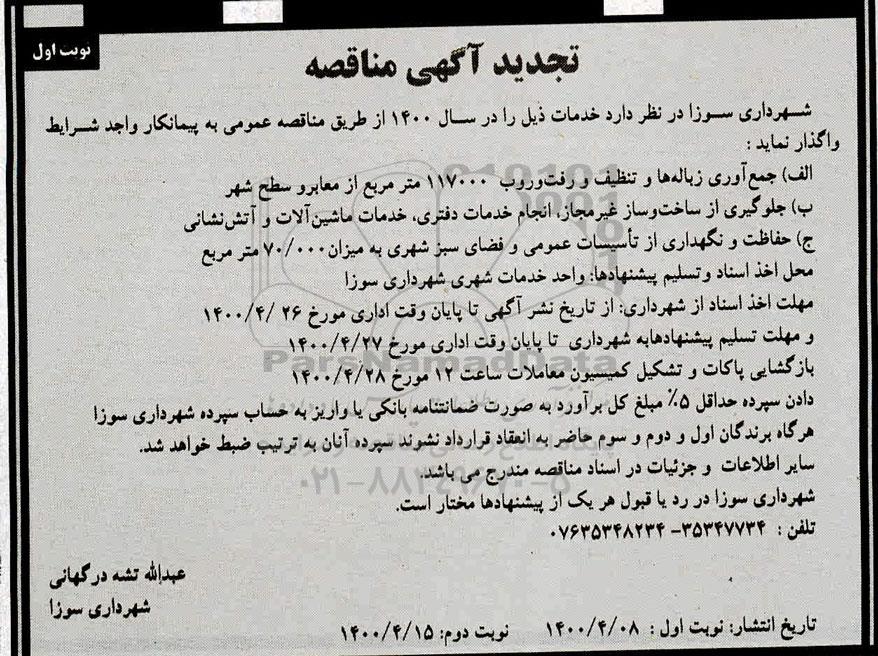 نوبت اول
تجدید آگهی مناقصه
شهرداری سوزا در نظر دارد خدمات ذیل را در سال ۱۴۰۰ از طریق مناقصه عمومی به پیمانکار واجد شرایط
واگذار نماید :
الف) جمع‌آوری زباله‌ها و تنظیف و رفت‌وروب ۱۱۷۰۰۰ متر مربع از معابرو سطح شهر
ب) جلوگیری از ساخت‌وساز غیرمجاز، انجام خدمات دفتری، خدمات ماشین‌آلات و آتش‌نشانی
ج) حفاظت و نگهداری از تأسیسات عمومی و فضای سبز شهری به میزان ۷۰/۰۰۰ متر مربع
محل اخذ اسناد وتسلیم پیشنهادها: واحد خدمات شهری شهرداری سوزا
مهلت اخذ اسناد از شهرداری: از تاریخ نشر آگهی تا پایان وقت اداری مورخ ۲۶ /۱۴۰۰/۴
و مهلت تسلیم پیشنهادهابه شهرداری تا پایان وقت اداری مورخ ۱۴۰۰/۴/۲۷
بازگشایی پاکات و تشکیل کمیسیون معاملات ساعت ۱۲ مورخ ۱۴۰۰/۴/۲۸
دادن سپرده حداقل ۵٪ مبلغ کل برآورد به صورت ضمانتنامه بانکی یا واریز به حساب سپرده شهرداری سوزا
هرگاه برندگان اول و دوم و سوم حاضر به انعقاد قرارداد نشوند سپرده آنان به ترتیب ضبط خواهد شد.
سایر اطلاعات و جزئیات در اسناد مناقصه مندرج می باشد.
شهرداری سوزا در رد یا قبول هر یک از پیشنهادها مختار است.
تلفن : ۳۵۳۴۷۷۳۴- ۰۷۶۳۵۳۴۸۲۳۴
عبدالله تشه درگهانی
شهرداری سوزا
تاریخ انتشار: نوبت اول : ۱۴۰۰/۴/۰۸ نوبت دوم: ۱۴۰۰/۴/۱۵
ParsNamadData